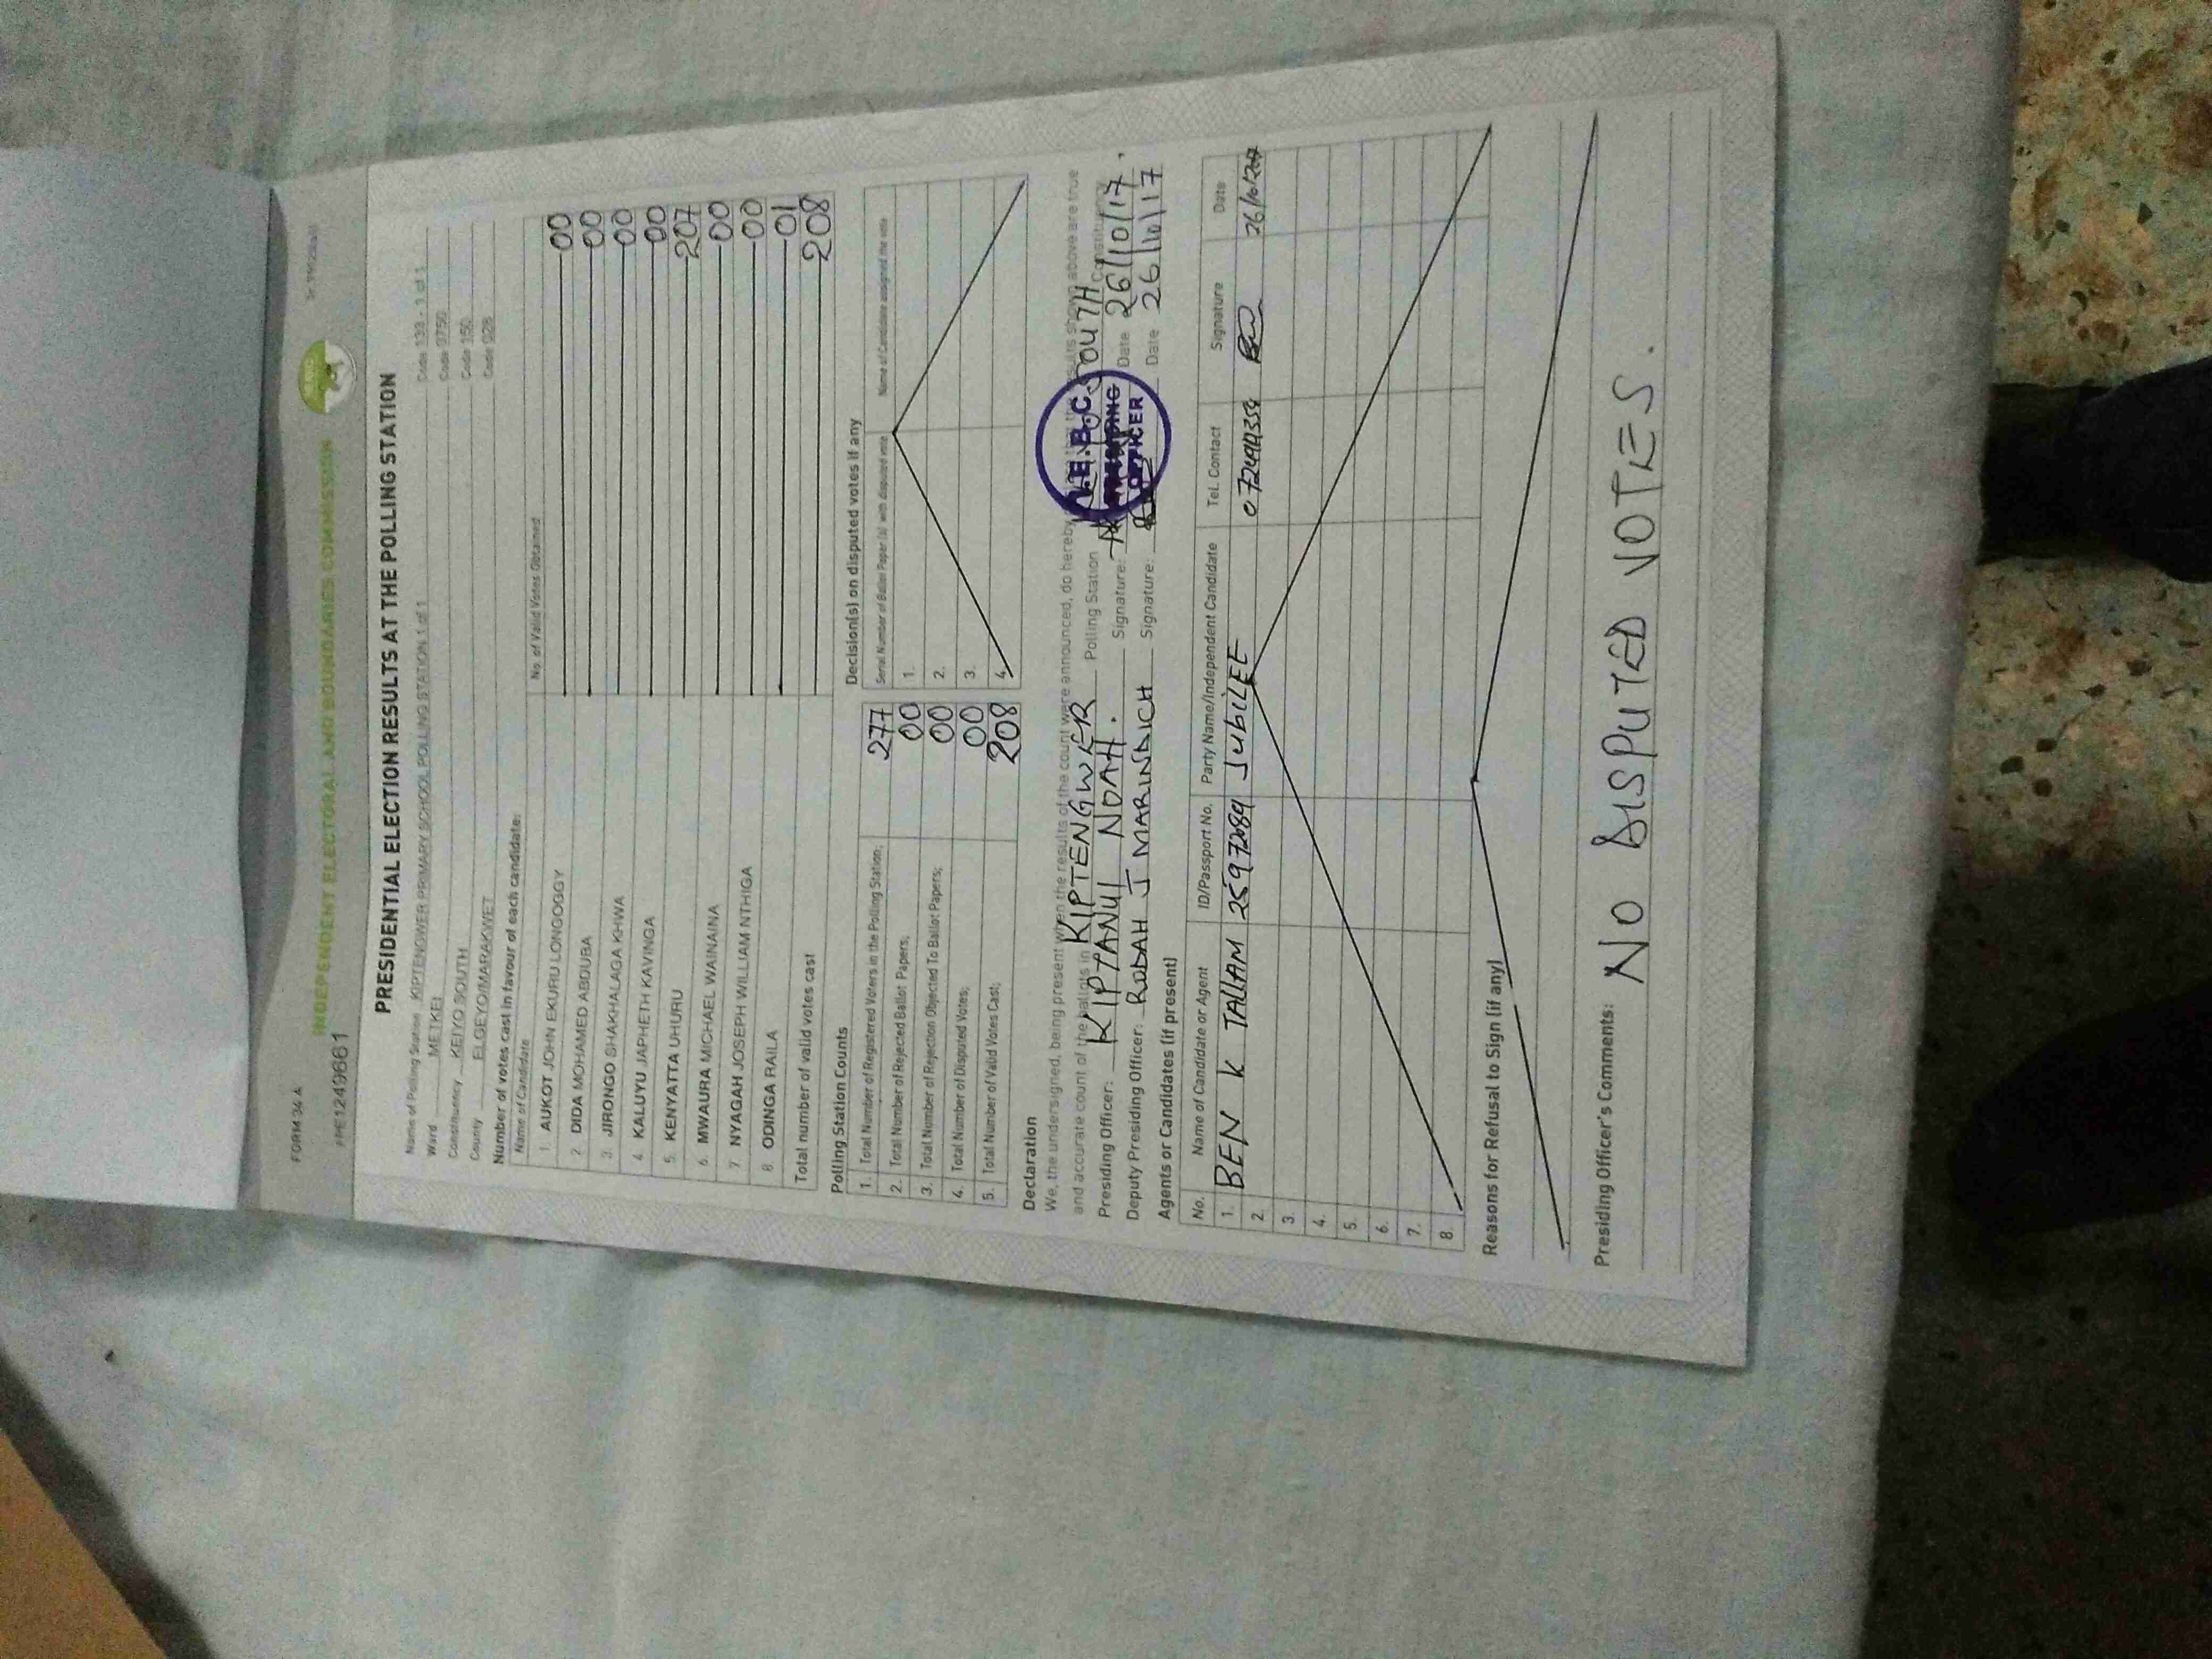 FORM 34 A
INDEPENDENT ELECTORAL AND BOUNDARIES COMMISSION
PRE1249661
PRESIDENTIAL ELECTION RESULTS AT THE POLLING STATION
Name of Polling Station KIPTENGWER PRIMARY SCHOOL POLLING STATION 1 of 1 Code 133 - 1 of 1
Ward METKEI Code 0750
Constituency KEIYO SOUTH Code 150
County ELGEYO/MARAKWET Code 028
Number of votes cast in favour of each candidate:
Name of Candidate No. of Valid Votes Obtained
1. AUKOT JOHN EKURU LONGOGGY 00
2. DIDA MOHAMED ABDUBA 00
3. JIRONGO SHAKHALAGA KHWA 00
4. KALUYU JAPHETH KAVINGA 00
5. KENYATTA UHURU 207
6. MWAURA MICHAEL WAINAINA 00
7. NYAGAH JOSEPH WILLIAM NTHIGA 00
8. ODINGA RAILA 01
Total number of valid votes cast 208
Polling Station Counts
1. Total Number of Registered Voters in the Polling Station; 277
2. Total Number of Rejected Ballot Papers; 00
3. Total Number of Rejection Objected To Ballot Papers; 00
4. Total Number of Disputed Votes; 00
5. Total Number of Valid Votes Cast; 208
Decision(s) on disputed votes if any
Serial Number of Ballot Paper (s) with disputed vote Name of Candidate assigned the vote
1.
2.
3.
4.
Declaration
We, the undersigned, being present when the results of the count were announced, do hereby results shown above are true
and accurate count of the ballots in KIPTENGWER Polling Station SOUTH Constituency
Presiding Officer: KIPTANUI NOAH. Signature: Date 26/10/17.
Deputy Presiding Officer: RODAH J MARINDICH Signature: Date 26/10/17
I.E.B.C.
PRESIDING
OFFICER
Agents or Candidates (if present)
No. Name of Candidate or Agent ID/Passport No. Party Name/Independent Candidate Tel. Contact Signature Date
1. BEN K TALLAM 25972089 JUBILEE
2.
3.
4.
5.
6.
7.
8.
Reasons for Refusal to Sign (if any)
Presiding Officer's Comments: NO DISPUTED VOTES.